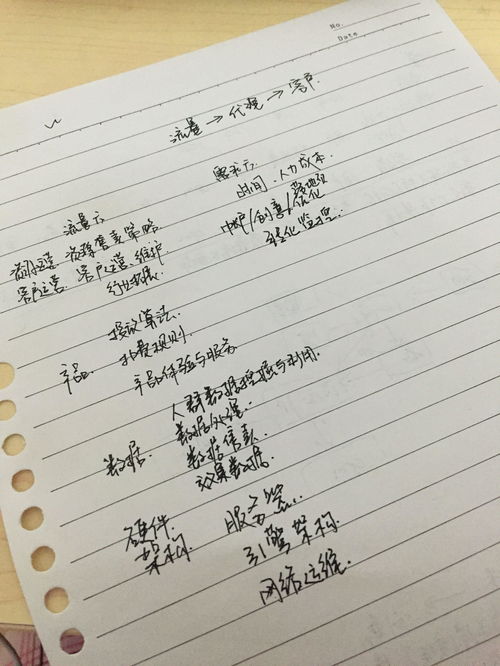 No.
Date
流量 → 代理 → 客户.
需求方.
时间、人力成本
中炉/创意/落地页
优化
量化监控.
流量方
资源运营 资源售卖策略
客户运营. 客户运营、维护
行业拓展
产品.
投放算法.
扣费规则
产品体验与服务
数据.
人群数据挖掘与利用.
数据处理
数据信息
效果数据.
硬件.
架构.
服务器..
引擎架构.
网络运维.